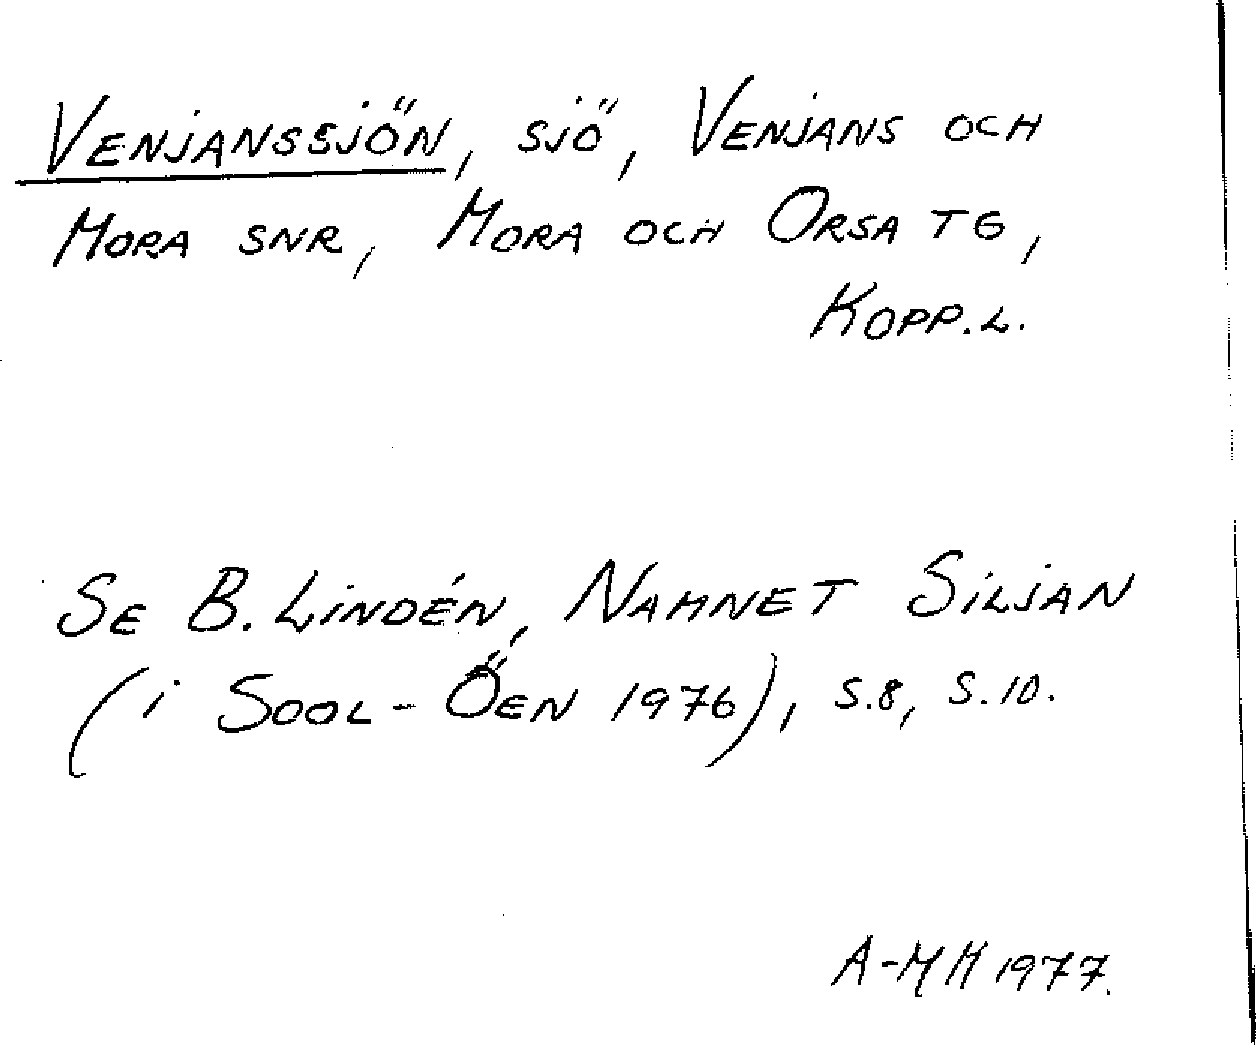 Venjanssjön, sjö, Venjans och
Mora snr, Mora och Orsa tg,
Kopp.l.
Se B. Lindén, Namnet Siljan
(i Sool-Öen 1976), s.8, s.10.
A-MH 1977.